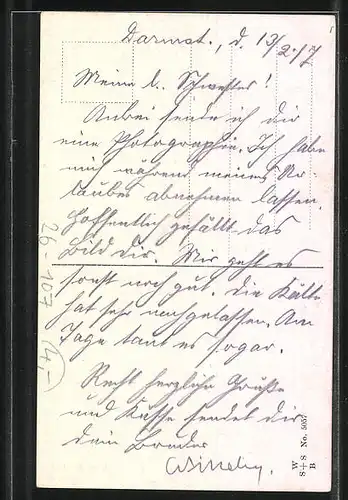 Darmst., d. 13/2.17
Meine l. Schwester!
Anbei sende ich dir
eine Photographie. Ich habe
mich während meines Ur-
laubes abnehmen lassen.
Hoffentlich gefällt das
Bild dir. Mir geht es
sonst noch gut. Die Kälte
hat sehr nachgelassen. Am
Tage taut es sogar.
Recht herzliche Grüße
und Küsse sendet dir
dein Bruder
26-107
4,-
W
S+S No. 5057
B